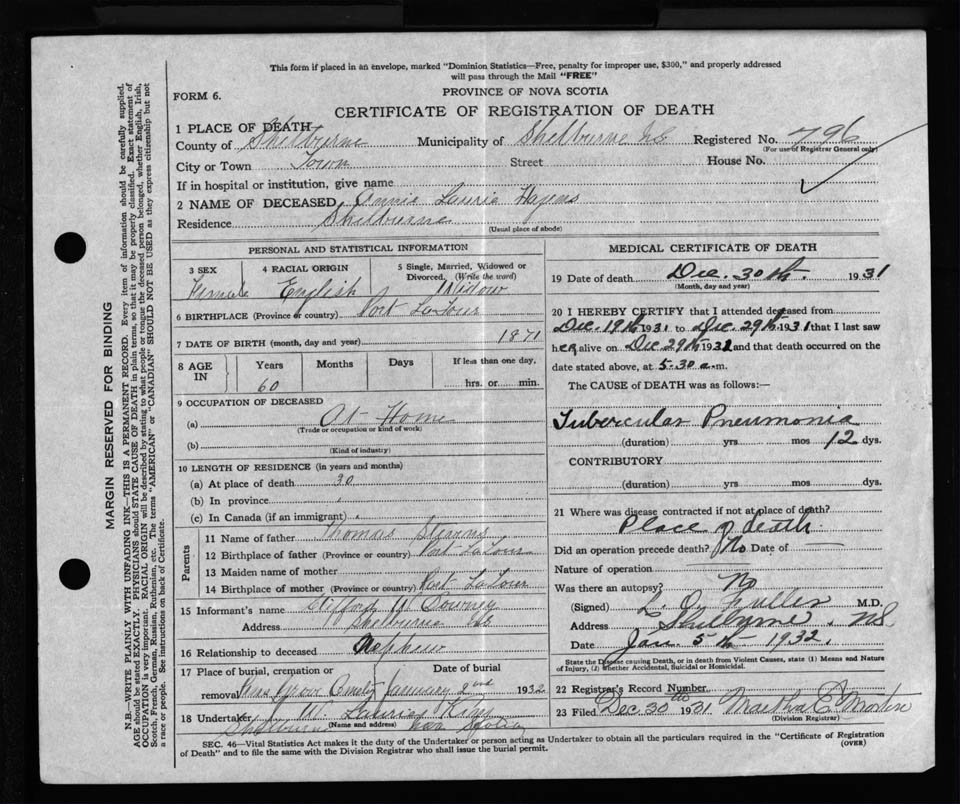 This form if placed in an envelope, marked "Dominion Statistics—Free, penalty for improper use, $300," and properly addressed
will pass through the Mail "FREE"
PROVINCE OF NOVA SCOTIA
FORM 6.
CERTIFICATE OF REGISTRATION OF DEATH
1 PLACE OF DEATH
County of Shelburne Municipality of Shelburne N.S. Registered No. 796
(For use of Registrar General only)
City or Town Town Street House No.
If in hospital or institution, give name
2 NAME OF DECEASED Annie Laurie
Residence Shelburne
(Usual place of abode)
PERSONAL AND STATISTICAL INFORMATION
3 SEX 4 RACIAL ORIGIN 5 Single, Married, Widowed or Divorced. (Write the word)
Female English Widow
6 BIRTHPLACE (Province or country) Port LaTour
7 DATE OF BIRTH (month, day and year) 1871
8 AGE IN Years Months Days If less than one day,
60 hrs. or min.
9 OCCUPATION OF DECEASED
(a) At Home
(Trade or occupation or kind of work)
(b)
(Kind of industry)
10 LENGTH OF RESIDENCE (in years and months)
(a) At place of death 30
(b) In province
(c) In Canada (if an immigrant)
Parents
11 Name of father Thomas
12 Birthplace of father (Province or country) Port LaTour
13 Maiden name of mother
14 Birthplace of mother (Province or country) Port LaTour
15 Informant's name
Address Shelburne N.S.
16 Relationship to deceased Nephew
17 Place of burial, cremation or Date of burial
removal January 2nd 1932
18 Undertaker W. Laurie King
(Name and address)
Shelburne Nova Scotia
MEDICAL CERTIFICATE OF DEATH
19 Date of death Dec. 30th 1931
(Month, day and year)
20 I HEREBY CERTIFY that I attended deceased from
Dec 19th 1931 to Dec 29th 1931 that I last saw
her alive on Dec 29th 1931 and that death occurred on the
date stated above, at 5-30 a.m.
The CAUSE of DEATH was as follows:
Tubercular Pneumonia
(duration) yrs mos 12 dys.
CONTRIBUTORY
(duration) yrs mos dys.
21 Where was disease contracted if not at place of death?
Place of death
Did an operation precede death? No Date of
Nature of operation
Was there an autopsy? No
(Signed) L. O. Fuller M.D.
Address Shelburne N.S.
Date Jan 5th 1932.
State the Disease causing Death, or in death from Violent Causes, state (1) Means and Nature
of Injury, (2) whether Accidental, Suicidal or Homicidal.
22 Registrar's Record Number
23 Filed Dec. 30th 1931 Martha
(Division Registrar)
SEC. 46—Vital Statistics Act makes it the duty of the Undertaker or person acting as Undertaker to obtain all the particulars required in the "Certificate of Registration
of Death" and to file the same with the Division Registrar who shall issue the burial permit.
(OVER)
MARGIN RESERVED FOR BINDING
N.B.—WRITE PLAINLY WITH UNFADING INK—THIS IS A PERMANENT RECORD. Every item of information should be carefully supplied.
AGE should be stated EXACTLY. PHYSICIANS should STATE CAUSE OF DEATH in plain terms, so that it may be properly classified. Exact statement of
OCCUPATION is very important. RACIAL ORIGIN will be described by stating to what people or race the deceased person belonged, whether English, Irish,
Scotch, French, German, Russian, Ruthenian, etc. The terms "AMERICAN" or "CANADIAN" SHOULD NOT BE USED as they express citizenship but not
a race or people. See instructions on back of Certificate.